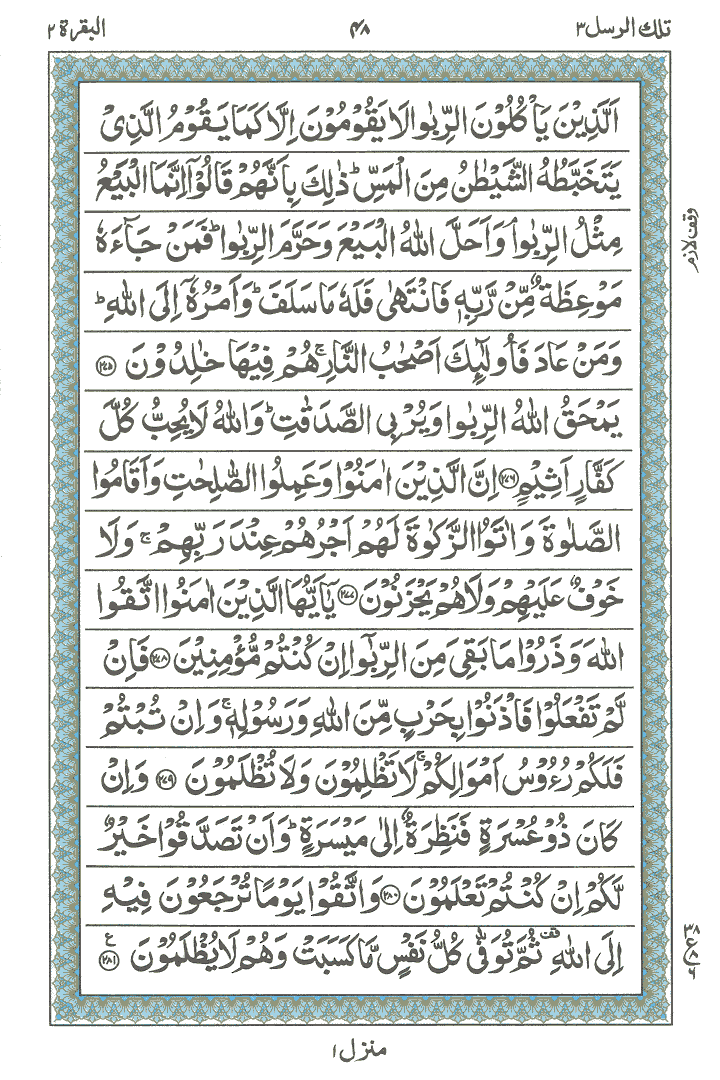 تلك الرسل ٣
٤٨
البقرة ٢
اَلَّذِيْنَ يَاْكُلُوْنَ الرِّبٰوا لَا يَقُوْمُوْنَ اِلَّا كَمَا يَقُوْمُ الَّذِىْ
يَتَخَبَّطُهُ الشَّيْطٰنُ مِنَ الْمَسِّ ؕ ذٰلِكَ بِاَنَّهُمْ قَالُوْۤا اِنَّمَا الْبَيْعُ
مِثْلُ الرِّبٰوا ۘ وَاَحَلَّ اللّٰهُ الْبَيْعَ وَحَرَّمَ الرِّبٰوا ؕ فَمَنْ جَآءَهٗ
وقف لازم
مَوْعِظَةٌ مِّنْ رَّبِّهٖ فَانْتَهٰى فَلَهٗ مَا سَلَفَ ؕ وَاَمْرُهٗۤ اِلَى اللّٰهِ ؕ
وَمَنْ عَادَ فَاُولٰٓئِكَ اَصْحٰبُ النَّارِ ۚ هُمْ فِيْهَا خٰلِدُوْنَ ﴿٢٧٥﴾
يَمْحَقُ اللّٰهُ الرِّبٰوا وَيُرْبِى الصَّدَقٰتِ ؕ وَاللّٰهُ لَا يُحِبُّ كُلَّ
كَفَّارٍ اَثِيْمٍ ﴿٢٧٦﴾ اِنَّ الَّذِيْنَ اٰمَنُوْا وَعَمِلُوا الصّٰلِحٰتِ وَاَقَامُوا
الصَّلٰوةَ وَاٰتَوُا الزَّكٰوةَ لَهُمْ اَجْرُهُمْ عِنْدَ رَبِّهِمْ ۚ وَلَا
خَوْفٌ عَلَيْهِمْ وَلَا هُمْ يَحْزَنُوْنَ ﴿٢٧٧﴾ يٰۤاَيُّهَا الَّذِيْنَ اٰمَنُوا اتَّقُوا
اللّٰهَ وَذَرُوْا مَا بَقِىَ مِنَ الرِّبٰۤوا اِنْ كُنْتُمْ مُّؤْمِنِيْنَ ﴿٢٧٨﴾ فَاِنْ
لَّمْ تَفْعَلُوْا فَاْذَنُوْا بِحَرْبٍ مِّنَ اللّٰهِ وَرَسُوْلِهٖ ۚ وَاِنْ تُبْتُمْ
فَلَكُمْ رُءُوْسُ اَمْوَالِكُمْ ۚ لَا تَظْلِمُوْنَ وَلَا تُظْلَمُوْنَ ﴿٢٧٩﴾ وَاِنْ
كَانَ ذُوْ عُسْرَةٍ فَنَظِرَةٌ اِلٰى مَيْسَرَةٍ ؕ وَاَنْ تَصَدَّقُوْا خَيْرٌ
لَّكُمْ اِنْ كُنْتُمْ تَعْلَمُوْنَ ﴿٢٨٠﴾ وَاتَّقُوْا يَوْمًا تُرْجَعُوْنَ فِيْهِ
اِلَى اللّٰهِ ۗ ثُمَّ تُوَفّٰى كُلُّ نَفْسٍ مَّا كَسَبَتْ وَهُمْ لَا يُظْلَمُوْنَ ﴿٢٨١﴾ ع
٣٨
ع ٨
٦
منزل ١